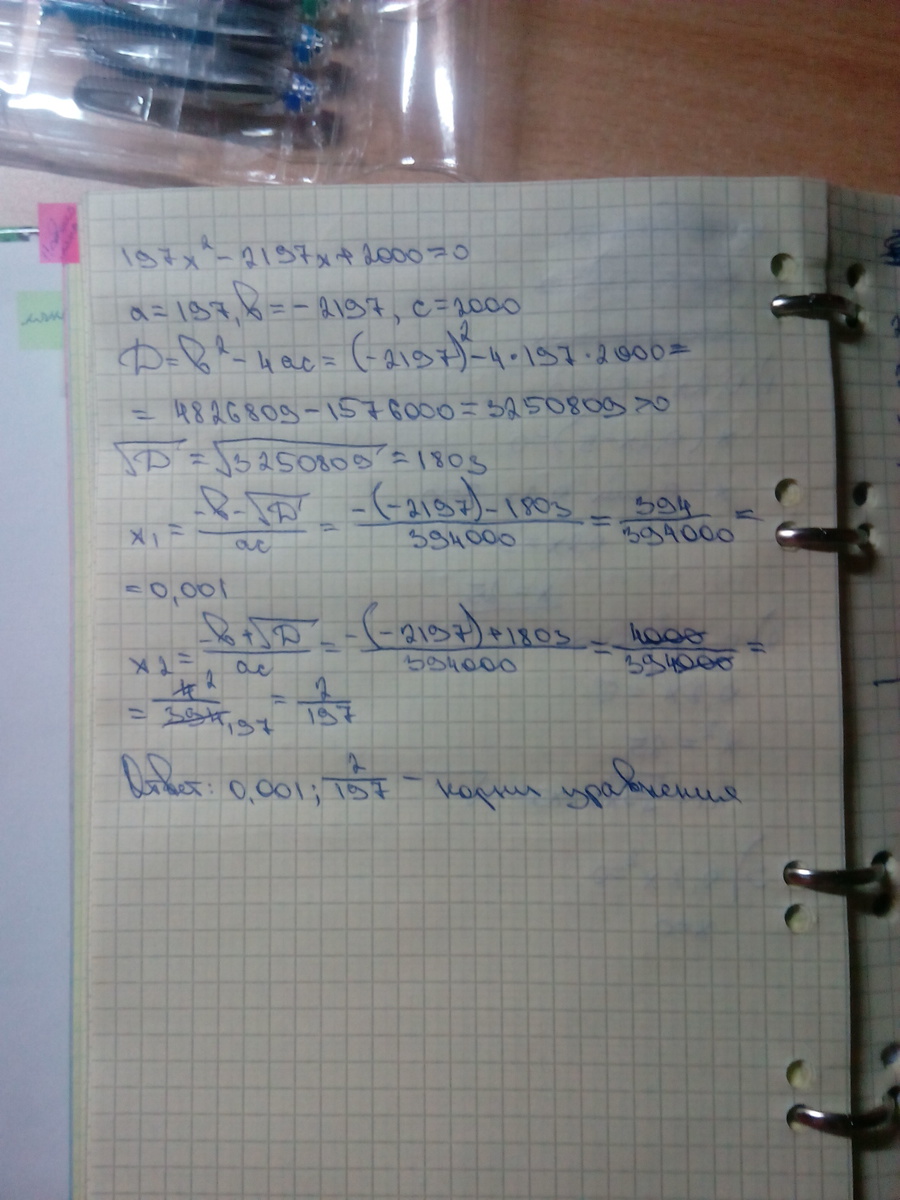 197x² - 2197x + 2000 = 0
a = 197, b = - 2197, c = 2000
D = b² - 4ac = (-2197)² - 4 · 197 · 2000 =
= 4826809 - 1576000 = 3250809 > 0
√D = √3250809 = 1803
x₁ = (-b - √D)/ac = (-(-2197) - 1803)/394000 = 394/394000 =
= 0,001
x₂ = (-b + √D)/ac = (-(-2197) + 1803)/394000 = 4000/394000 =
= 4 2/394 197 = 2/197
Ответ: 0,001; 2/197 - корни уравнения